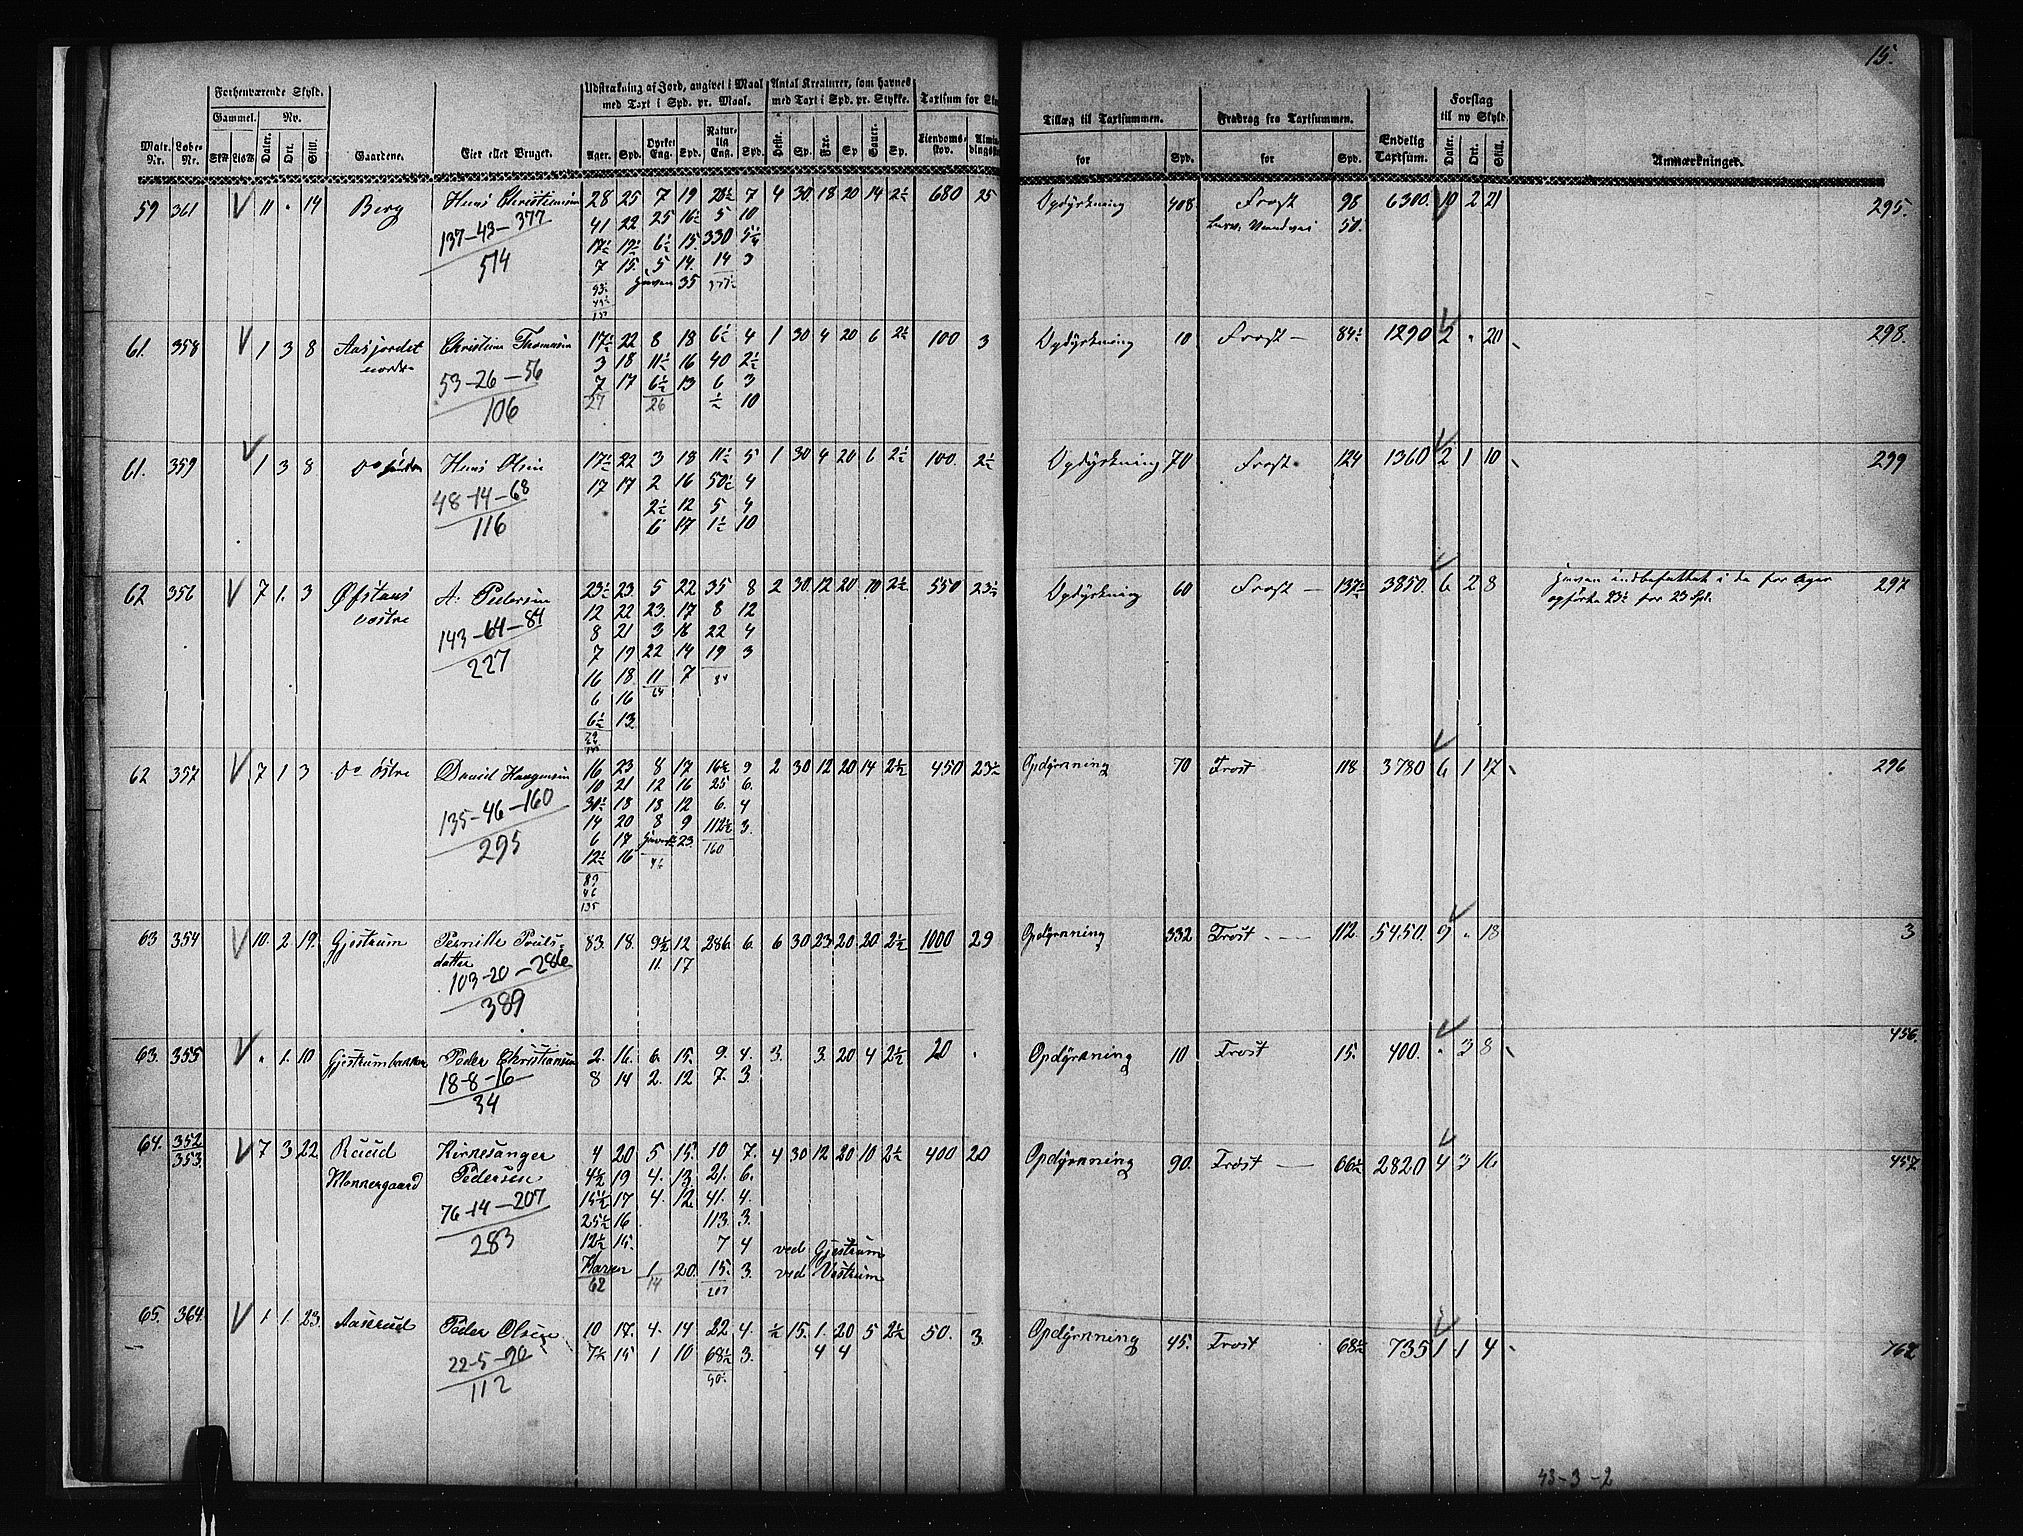 15.
Forhenværende Skyld.
Udstrækning af Jord, angivet i Maal med Taxt i Spd. pr. Maal.
Antal Kreaturer, som havnes med Taxt i Spd. pr. Stykke.
Taxtsum for
Tillæg til Taxtsummen.
Fradrag fra Taxtsummen.
Endelig Taxtsum.
Forslag til ny Skyld.
Anmærkninger.
Gammel. Ny.
Matr. Nr. Løbe-Nr. Daler. Ort. Skill. Gaardene. Eier eller Bruger. Ager. Spd. Dyrket Eng. Spd. Naturlig Eng. Spd. Heste. Sp. Fæ. Sp Sauer. Sp. Eiendoms-skov. for Spd. for Spd. Daler. Ort. Skill.
59 361 11 . 14 Berg Hans Christiansen 28 25 7 19 28½ 7 4 30 18 20 14 2½ 680 25 Opdyrkning 408 Frost 98 6300 10 2 21 295.
41 22 25 16½ 5 10 50.
137-43-377 17½ 17½ 6½ 15. 330 5¼
514 7 15. 5 14. 14 3
Haven 35
61. 358 1 3 8 Aasjordet nordre Christian Thomasen 17½ 22 8 18 6½ 4 1 30 4 20 6 2½ 100 3 Opdyrkning 10 Frost 84½ 1290 2 " 20 298.
3 18 11½ 16 40 2½
53-26-56 7 17 6½ 13 6 3
106 27 26 ½ 10
61. 359 1 3 8 Do søndre Hans Olsen 17½ 22 3 18 11½ 5 1 30 4 20 6 2½ 100. 2½ Opdyrkning 70 Frost 124 1360 2 1 10 299
48-14-68 17 17 2 16 50½ 4
2½ 12 5 4
116 6 17 1½ 10
62 356 7 1. 3 Øfstaas vestre A. Pedersen 23½ 23. 5 22 35 8 2 30. 12 20 10 2½ 550 23½ Opdyrkning 60 Frost 137½ 3850. 6 2 8 Haven indbefattet i de for Ager opførte 23½ for 23 Spd. 297
12 22 23. 17 8 12
143-64-84 8 21 3 16 22 4
227 7 19 22 14 19 3
16 18. 11 7 84
6 16 64
6½ 13.
62 357 7 1 3 Do østre David Haagensen 16 23 8 17 16½ 9 2 30 12 20 14 2½ 450 23½ Opdyrkning 70 Frost 118 3780 6 1 17 296
10 21 12 16 25 6.
135-46-160 30½ 18 18 12 6. 4
295 14 20 8 9 112½ 3.
6 17 Haven 23. 160
12½ 16
89
46
135
63 354 10. 2. 19. Gjestrum Pernille Poulsdatter 83. 18. 9½ 12 286. 6. 6 30 23. 20 20. 2½ 1000 29 Opdyrkning 332 Frost 112. 5450. 9 " 18 3
11. 17
103-20-286
389
63. 355 " 1. 10 Gjestrumbakken Peder Christiansen 2. 16. 6. 15. 9. 4. 3. 3. 20 4 2½ 20 . Opdyrkning 10 Frost 15. 400. " 3 8 456.
18-8-16 8 14 2. 12 7. 3.
34
64. 352 353. 7 3 22. Ruud Klonnergaard Pedersen 4 20 5 15. 10 7. 4 30 12 20 10 2½ 400 20 Opdyrkning 90. Frost 66½ 2820 4 3 16 457
4½ 19 4. 13. 21. 6.
76-14-207 15½ 17 4. 12 41. 4.
283 25½ 16 113. 3.
12½ 15. 7 4 ved Gjestrum
Haven 1 20. 15. 3. ved Vestrum
62 14 207
65. 364. 1. 1. 23. Aaserud Peder Olsen 10 17. 4. 14 22. 4. ½ 15. 1. 20 5 2½ 50. 3. Opdyrkning 45. Frost 68½ 735 1 1 4 762
7½ 15 1 10 68½ 3. 4 4
22-5-90
112
43-3-2